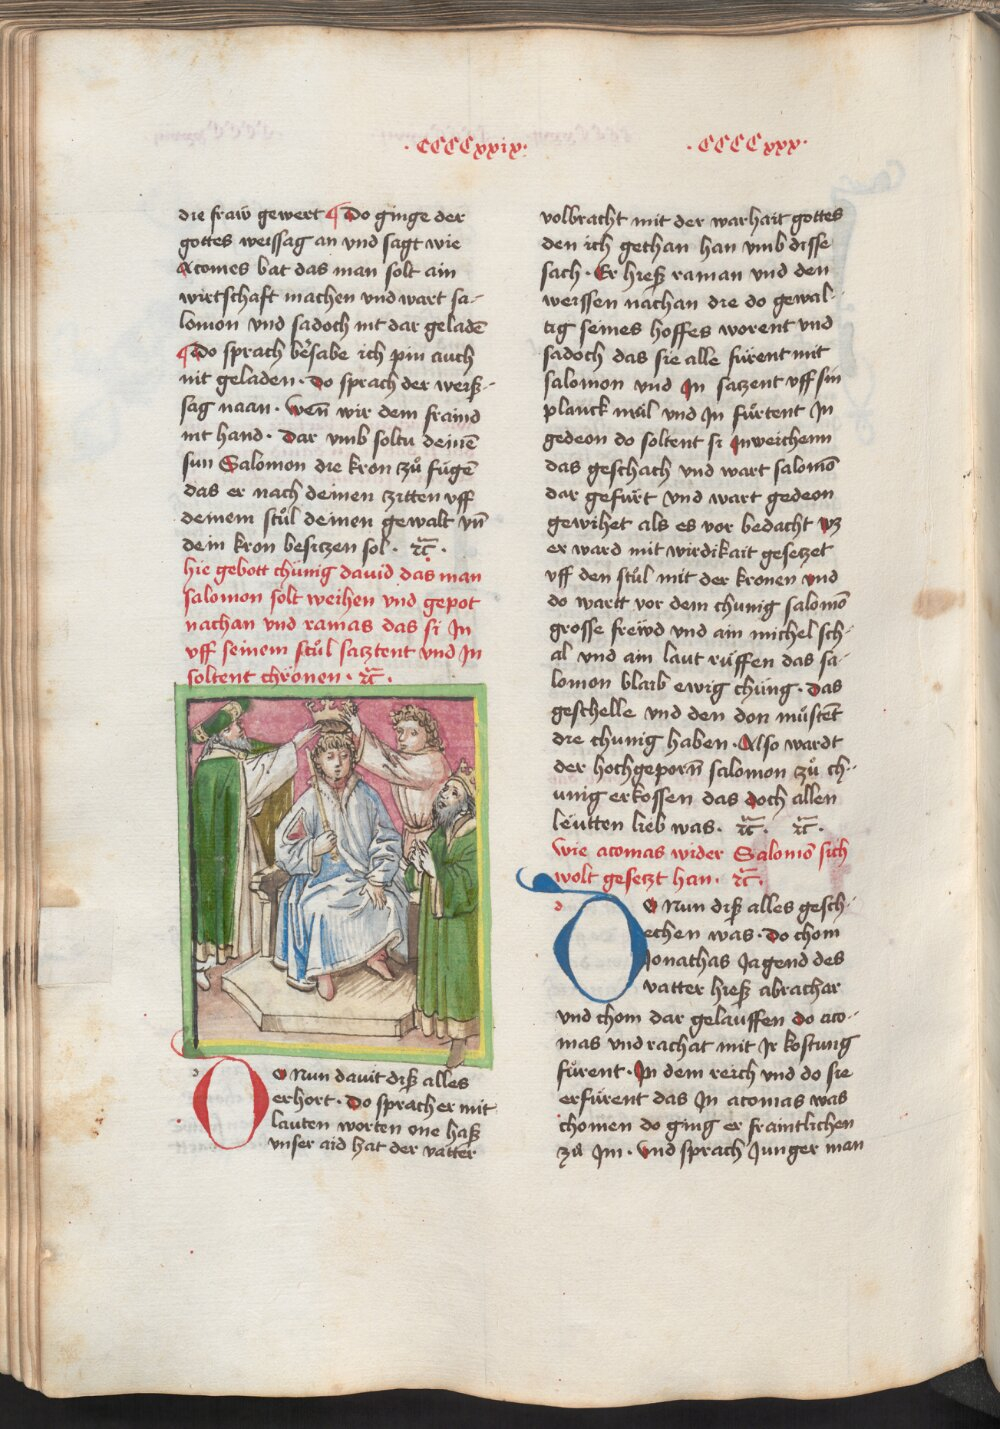 ·CCCCxxix·
die fraw gewert ¶ Do ginge der
gottes weissag an vnd sagt wie
Acomes bat das man solt ain
wirtschaft machen vnd wart sa-
lomon vnd sadoch nit dar geladē
¶ Do sprach bersabe ich pin auch
nit geladen · Do sprach der weiß-
sag naan · Wen̄ wir dem fraind
nit hand · Dar vmb soltu deinē
sun Salomon die kron tzů fugē
das er nach deinen tzitten vff
deinem stůl deinen gewalt vn̄
dein kron besitzen sol · ꝛc̄ ·
hie gebott chünig dauid das man
salomon sólt weihen vnd gepot
nachan vnd ramas das si Jn
vff seinem stůl satztent vnd Jn
soltent chrönen · ꝛc̄ ·
DO Nun dauit diß alles
erhort · Do sprach er mit
lauten worten one haß
vnser aid hat der vatter
·CCCCxxx·
volbracht mit der warhait gottes
den ich gethan han vmb disse
sach · Er hieß raman vnd den
weissen nachan die do gewal-
tig seines hoffes worent vnd
sadoch das sie alle fürent mit
salomon vnd Jn satzent vff sin
planck mül vnd Jn fůrtent Jn
gedeon do soltent si Jn weichenn
das geschach vnd wart salomō
dar gefůrt vnd wart gedeon
gewihet als es vor bedacht wz
er ward mit wirdikait gesetzet
vff den stůl mit der kronen vnd
do wartt vor dem chunig salomō
grosse frewd vnd ain michel sch-
al vnd ain laut rüffen das sa-
lomon blaib ewig chüng · Das
geschelle vnd den don můstent
die chunig haben · Also wardt
der hochgeporn̄ salomon zů ch-
unig erkossen das doch allen
leütten lieb was · ꝛc̄ · ꝛc̄ ·
Wie acomas wider Salomō sich
wolt gesetzt han · ꝛc̄ ·
DO Nun diß alles gesch-
echen was · Do chom
Jonathas Jagend des
vatter hieß abrachar
vnd chom dar gelauffen do aco-
mas vnd rachat mit Jr kostung
fůrent · Jn dem reich vnd do sie
erfürent das Jn acomas was
chomen do ging er fraintlichen
zů Jm · Vnd sprach Junger man